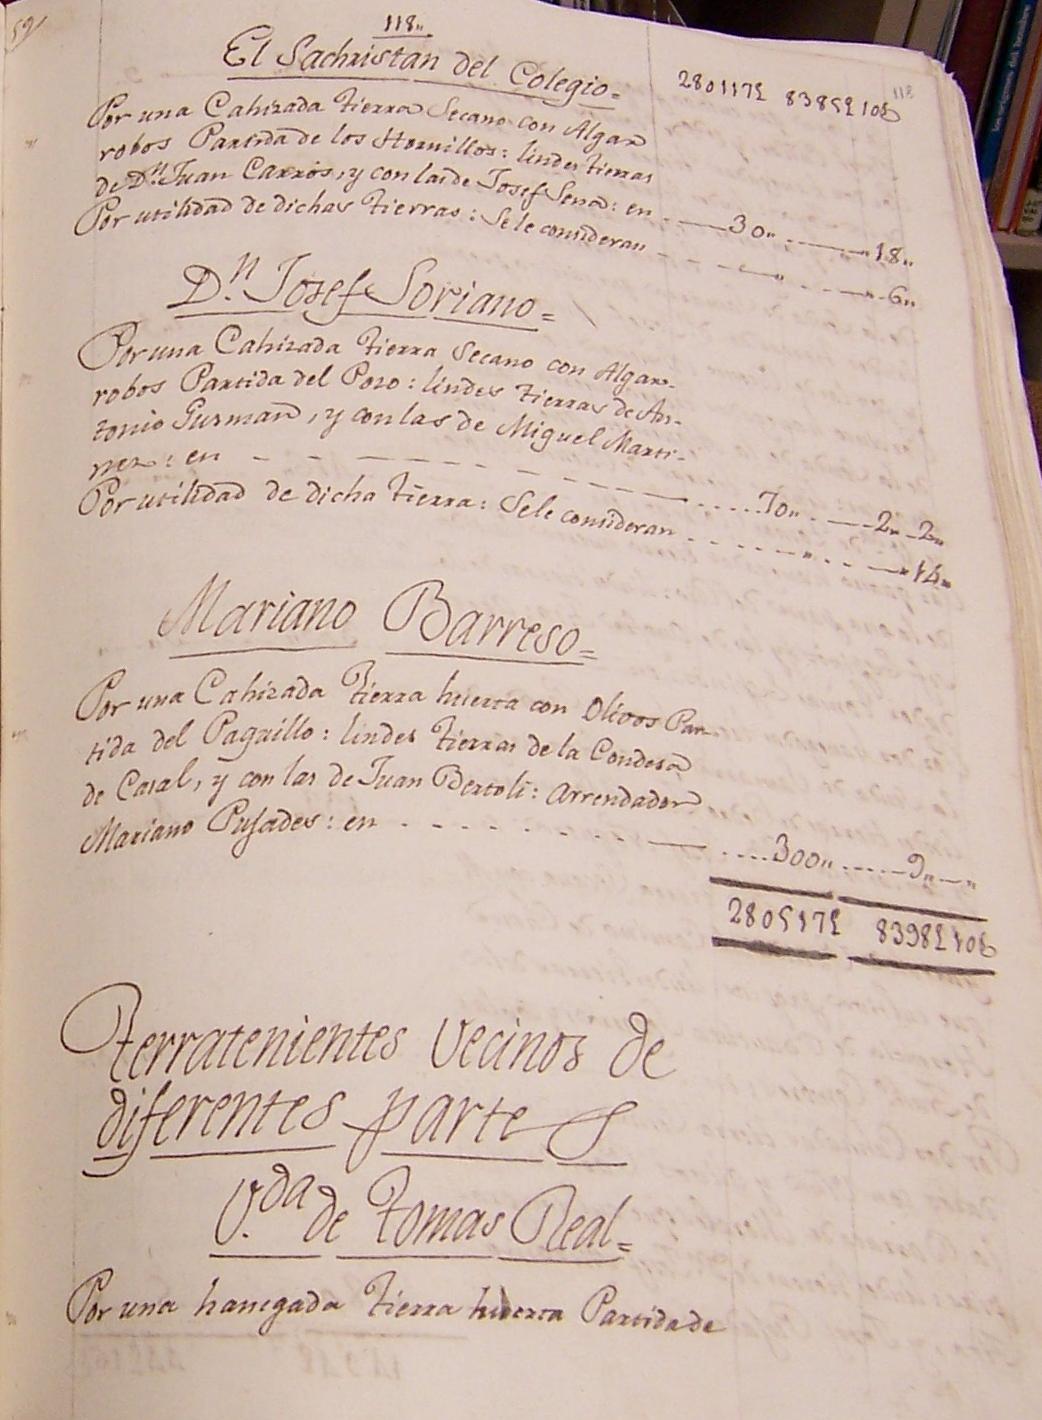 59
118"
118
El Sachristan del Colegio=
Por una Cahizada tierra Secano con Algar
robos Partida de los Hornillos: lindes tierras
de Dn. Juan Carros, y con las de Josef Sena: en . —— 30" . . . —— "18"
Por utilidad de dichas tierras: Se le consideran - - - — " - - - — "-6"
Dn. Josef Soriano=
Por una Cahizada tierra Secano con Algar-
robos Partida del Pozo: lindes tierras de An-
tonio Gusman, y con las de Miguel Marti-
nez: en - - — - - - — - - - —— . . . . . 70" . —— 2" - 2"
Por utilidad de dicha tierra: Se le consideran . . . . . . " . . —— "14"
Mariano Barreso=
Por una Cahizada tierra huerta con Olivos Par-
tida del Paguillo: lindes tierras de la Condesa
de Casal, y con las de Juan Bertoli: Arrendador
Mariano Pusades: en . . . . . . . . . —— . . . . 300" . . . . . — 9" — "
Terratenientes Vecinos de
diferentes partes
V.da de Tomas Real=
Por una hanegada tierra huerta Partida de